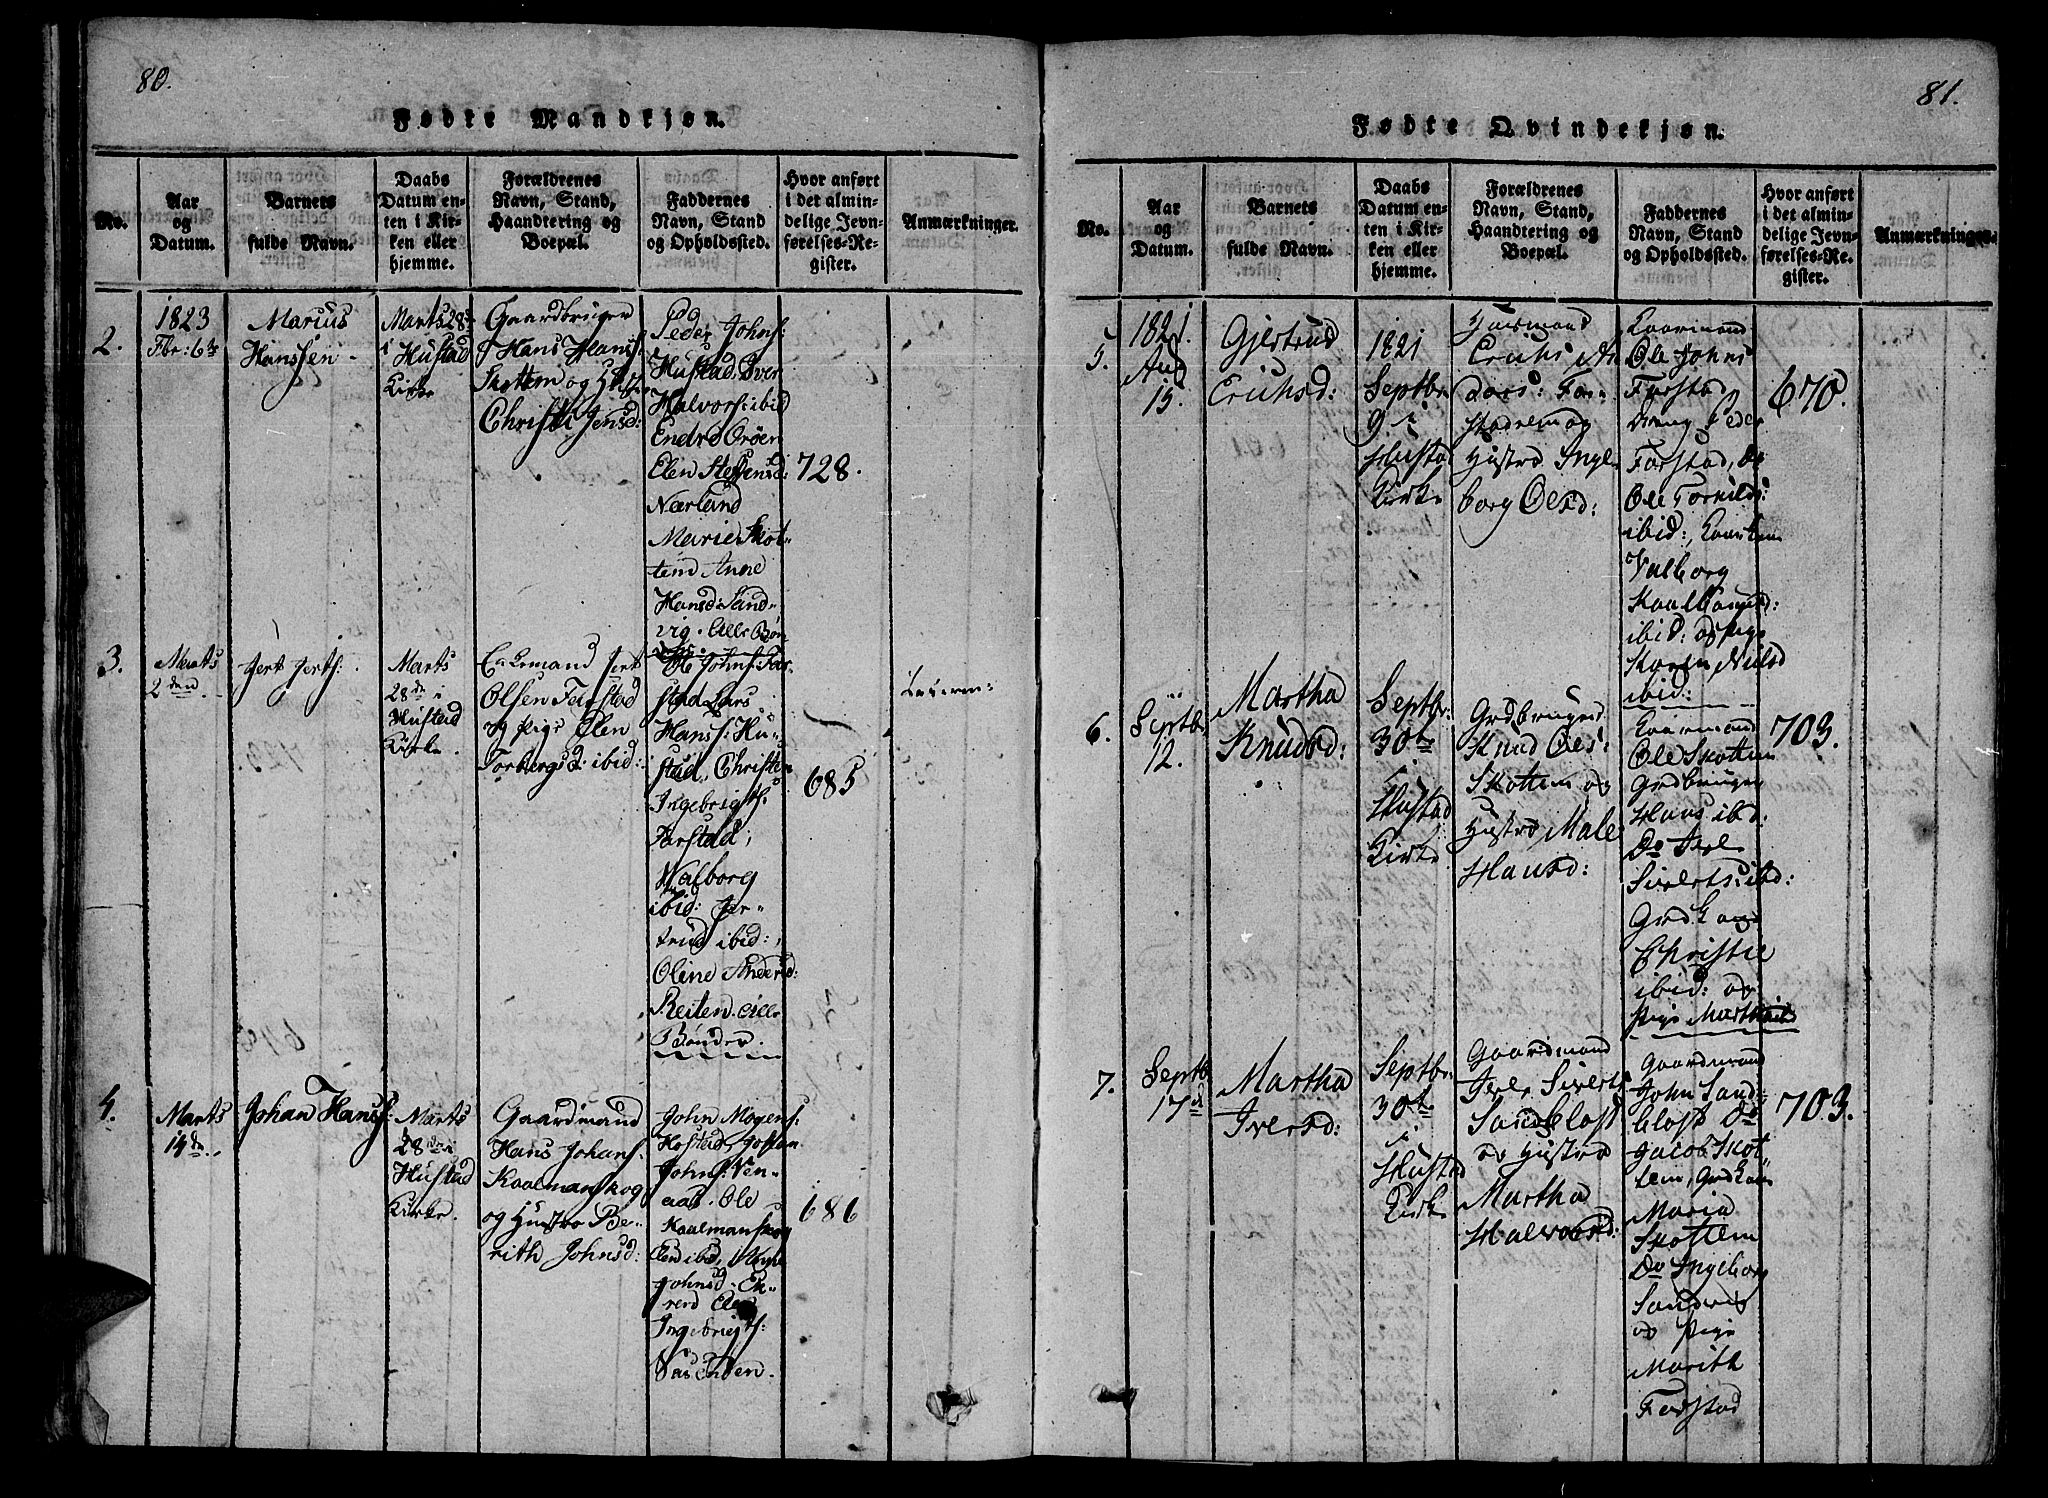 80.
Fødte Mandkjøn.
No.
Aar
og
Datum.
Barnets
fulde Navn.
Daabs
Datum en-
ten i Kir-
ken eller
hjemme.
Forældrenes
Navn, Stand,
Haandtering og
Boepæl.
Faddernes
Navn, Stand
og Opholdssted.
Hvor anført
i det almin-
delige Jevn-
førelses-Re-
gister.
Anmærkninger.
2.
1823
Fbr: 6te
Marius
Hanssen
Marts 28
i Hustad
Kirke
Gaardbruger
Hans Hans:
Skottem og Hustr
Christi Jensd:
Peder Johns:
Hustad. Iver
Halvors: ibid
Endre Orøen
Elen Steffensd:
Nærland
Marie Skot-
tem Anne
Hansd: Sand-
vig. Alle Bøn-
der.
728.
3.
Marts
2den
Jert Jerts:
Marts
28de i
Hustad
Kirke.
Enkemand Jert
Olsen Farstad
og Pige Elen
Torbergsd: ibid:
Ole Johns: Far-
stad Lars
Hanss: Hu-
stad, Christen
Ingebrigts:
Farstad,
Walborg
ibid: Jer-
trud ibid:,
Oline Andersd:
Reiten. Alle
Bønder.
685
4.
Marts
14de
Johan Hanss:
Marts
28de i
Hustad
Kirke.
Gaardmand
Hans Johans:
Kaalmanskog
og Hustro Be-
rith Johnsd:
John Mogens:
Hostad, Jostan
Johns: Ven-
aab. Ole
Kaalmanskog
Elen ibid, Anne
Johnsd: Ek-
rem Elen
Ingebrigts:
686
81.
Fødte Qvindekjøn.
No.
Aar
og
Datum.
Barnets
fulde Navn.
Daabs
Datum en-
ten i Kir-
ken eller
hjemme.
Forældrenes
Navn, Stand,
Haandtering og
Boepæl.
Faddernes
Navn, Stand
og Opholdssted.
Hvor anført
i det almin-
delige Jevn-
førelses-Re-
gister.
Anmærkninger.
5.
1821.
Aug
15.
Gjertrud
Erichsd:
1821
Septbr:
9 i
Hustad
Kirke
Huusmand
Erichs An
ders: Far-
stadeem og
Hustro Inge
borg Olesd:
Gaarmand
Ole Johns
Farstad
Dreng Peder
Farstad, Do
Ole Torkilds:
ibid:, Kaarkone
Valborg
ibid: og Pige
Karen Nilsd
ibid:
670.
6.
Septbr
12.
Martha
Knudsd:
Septbr:
30te
i
Hustad
Kirke
Grdbruger
Knud Oles:
Skottem og
Hustro Male
Hansd:
Gaarmand
Ole Skottem
Grdbruger
Hans ibd:
Do Iver
Siverts: ibd:
Grdkone
Christie
ibid: og
Pige Martha ibd
703.
7.
Septbr
17d
Martha
Iversd:
Septbr:
30te
i
Hustad
Kirke
Gaardmand
Iver Siverts
Sandblost
og Hustro
Martha
Halvorsd:
Gaardmand
John Sand-
blost Do
Jacob Skot-
tem, Grdkone
Maria
Skottem
Do Ingeborg
Sandvig
og Pige
Marith
Farstad
703.